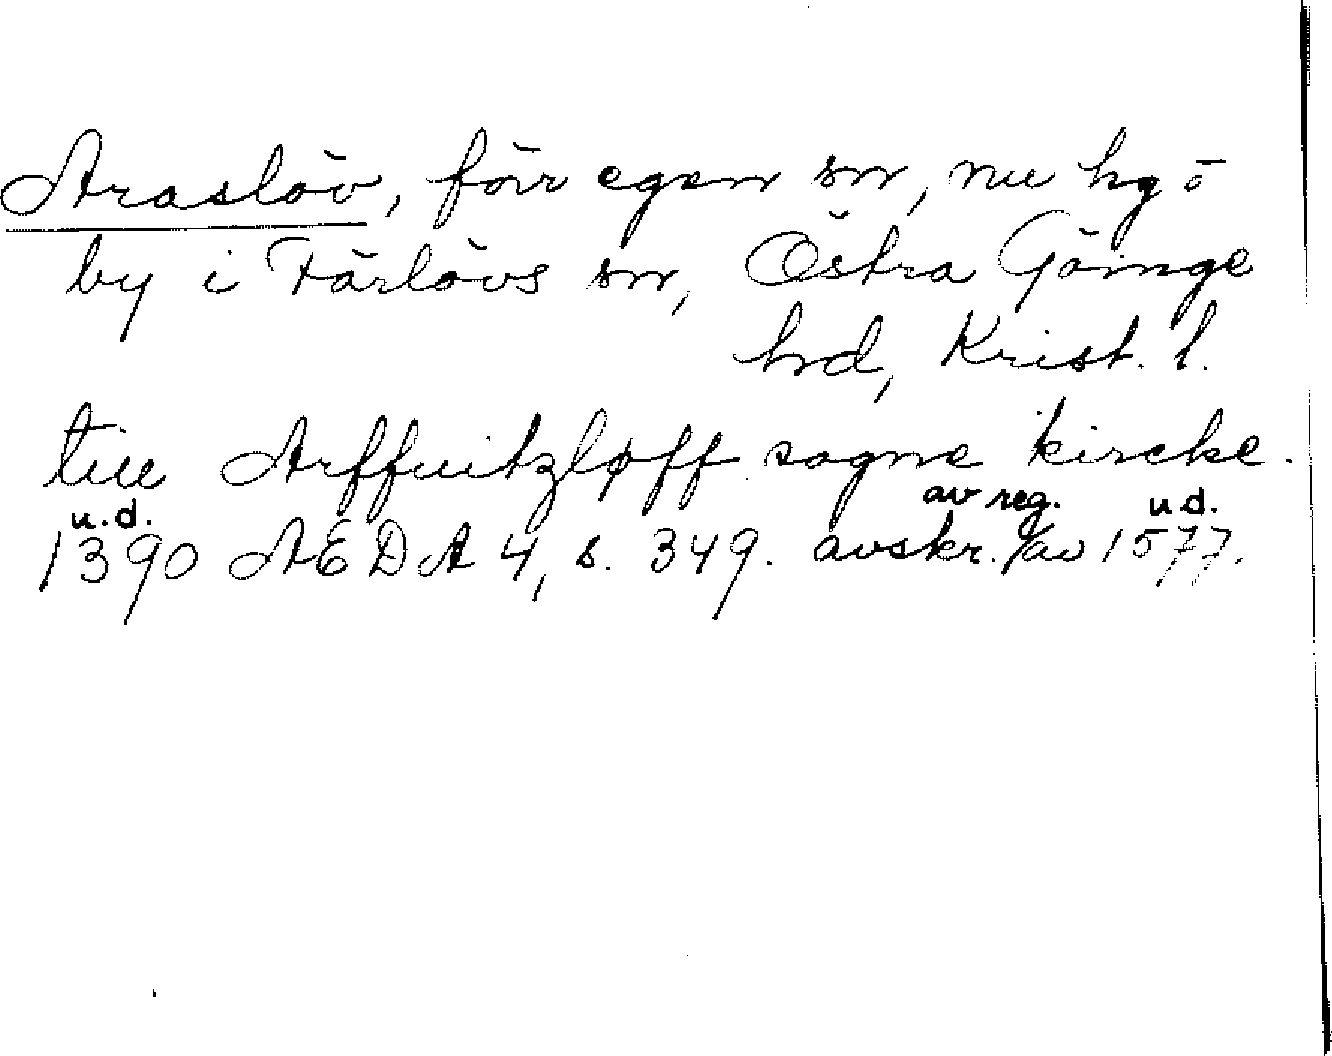 Araslöv, förr egen sn, nu hg o
by i Färlövs sn, Östra Göinge
hd, Krist. l.
till Arffuitzløff sogne kircke.
u.d. av reg. u.d.
1390 ÆDA 4, s. 349. avskr./av 1577.